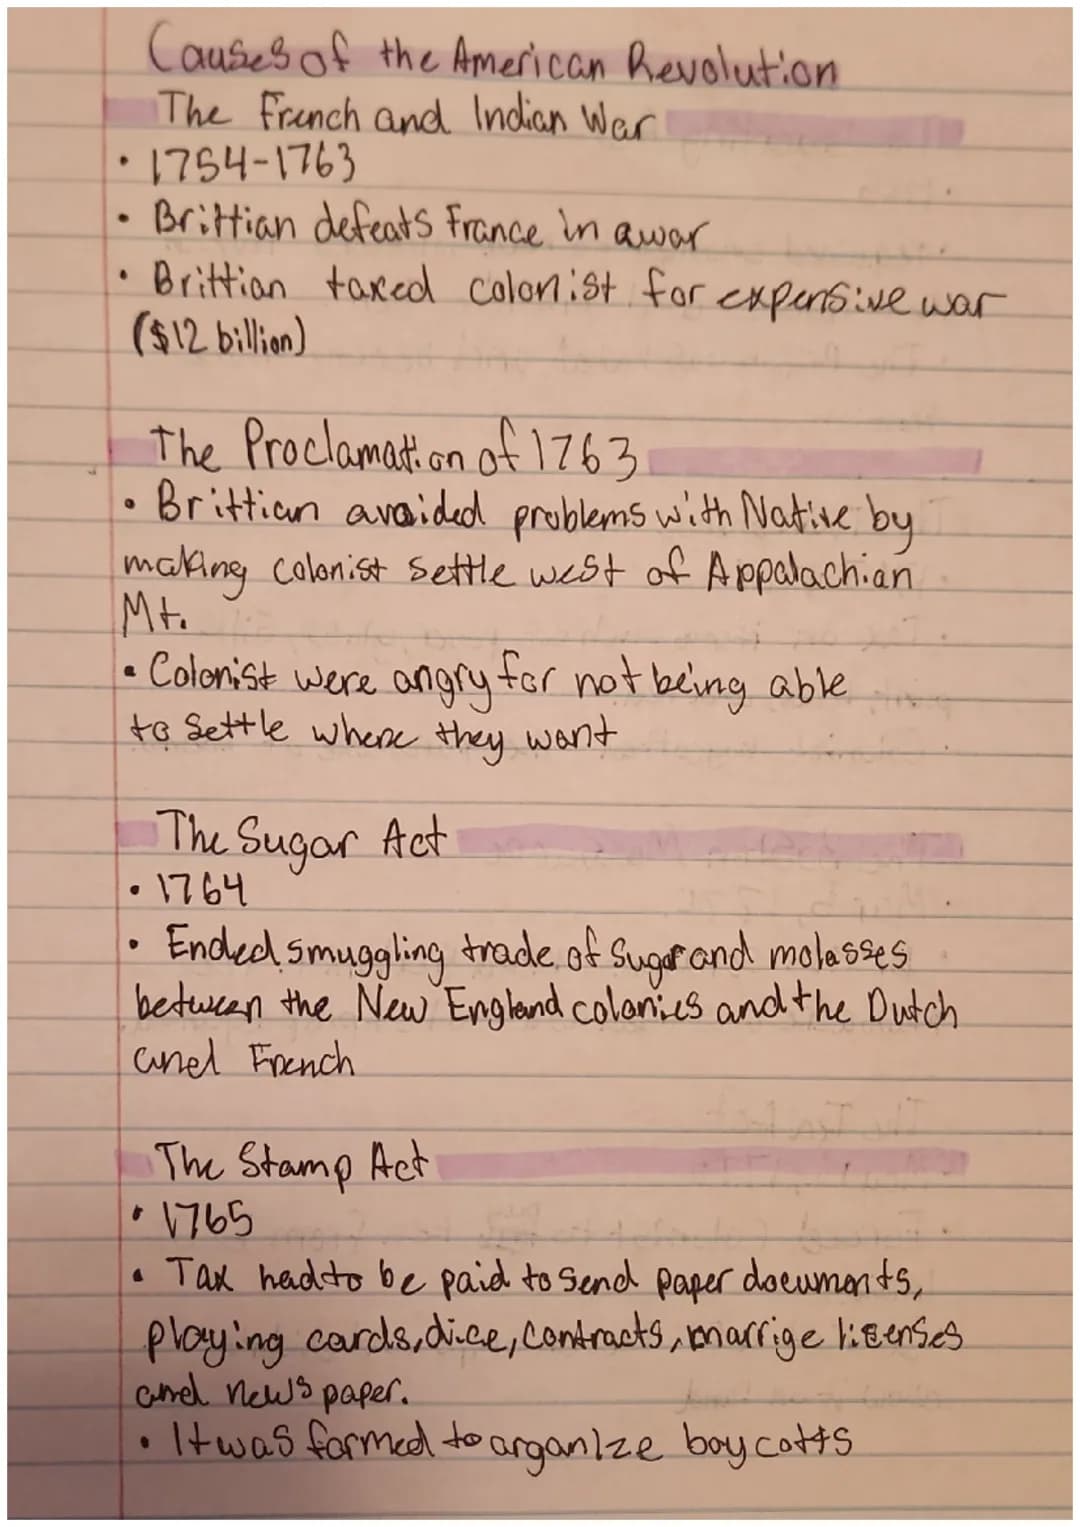 Causes of the American Revolution
The French and Indian War
• 1754-1763
• Brittian defeats France in a war
• Brittian taxed colonist for expensive war
($12 billion)
The Proclamation of 1763
• Brittian avoided problems with Native by
making colonist settle west of Appalachian
Mt.
• Colonist were angry for not being able
to settle where they want
The Sugar Act
• 1764
• Ended smuggling trade of Sugar and molasses
between the New England colonies and the Dutch
and French
The Stamp Act
• 1765
• Tax had to be paid to send paper documents,
playing cards, dice, contracts, marrige licenses
and news paper.
• It was formed to organize boycotts